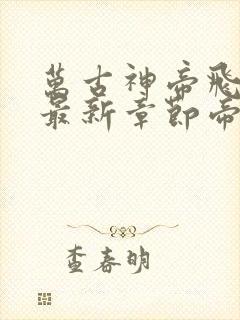 萬古神帝飛
最新章節帝
查春明